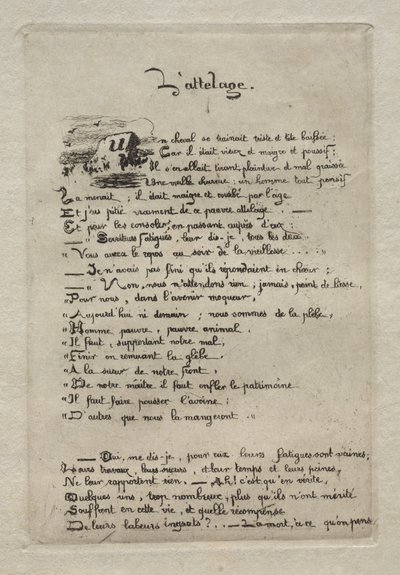 L'attelage.
Un cheval se trainait triste et tête baissée :
Car il était vieux et maigre et poussif ;
Il s'en allait tirant, plaintive et mal graissée
Une vieille charrue : un homme tout pensif
La menait ; il était maigre et courbé par l'âge
Et j'eus pitié vraiment de ce pauvre attelage . —
Et pour les consoler, en passant auprès d'eux :
— " Serviteurs fatigués, leur dis-je, tous les deux
" Vous aurez le repos au soir de la vieillesse . . . . "
— Je n'avais pas fini qu'ils répondaient en chœur ;
— " Non, nous n'attendons rien ; jamais, point de liesse,
" Pour nous , dans l'avenir moqueur,
" Aujourd'hui ni demain ; nous sommes de la plèbe,
" Homme pauvre, pauvre animal.
" Il faut, supportant notre mal,
" Finir en remuant la glèbe.
" A la sueur de notre front,
" De notre maître il faut enfler le patrimoine
" Il faut faire pousser l'avoine ;
" D'autres que nous la mangeront . "
— Oui, me dis-je , pour eux leurs fatigues sont vaines ;
Leurs travaux, leurs sueurs, et leur temps et leurs peines,
Ne leur rapportent rien. — Ah ! c'est qu'en vérité,
Quelques uns, trop nombreux, plus qu'ils n'ont mérité
Souffrent en cette vie, et quelle récompense
De leurs labeurs ingrats ? . . — La mort, à ce qu'on pense